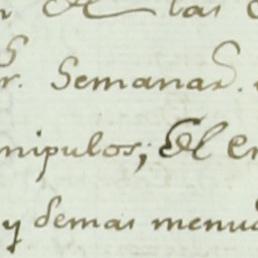 de las
r. Semanar.
nipulos; El en
y demas menu